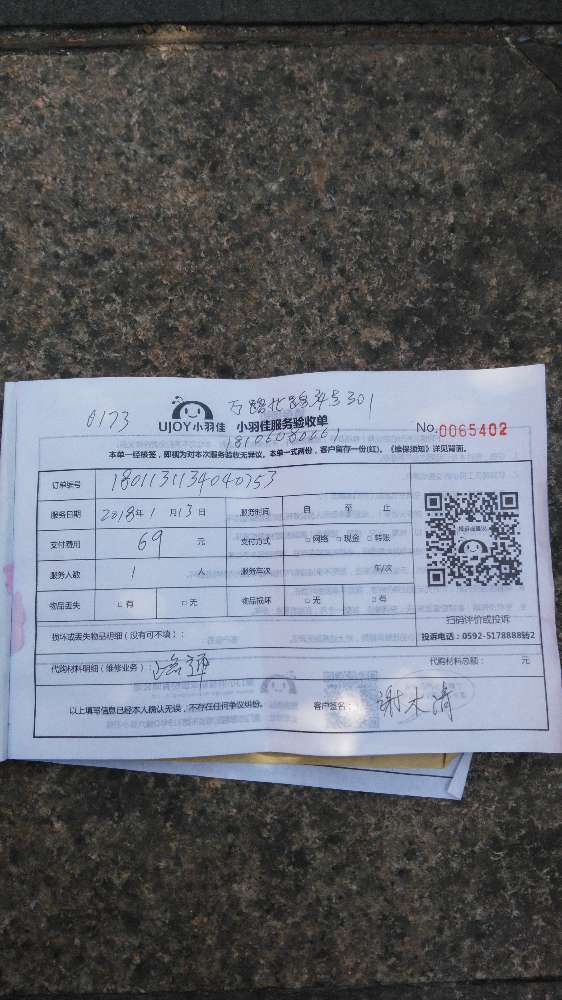 0173
UJOY小羽佳 小羽佳服务验收单
No.0065402
本单一经核签，即视为对本次服务验收无异议。本单一式两份，客户留存一份(红)，《维保须知》详见背面。
订单编号
服务日期 2018年1月13日 服务时间 自 至 止
支付费用 69 元 支付方式 □网络 □现金 □转账
服务人数 1 人 服务车次 车/次
物品丢失 □有 □无 物品损坏 □无 □有
扫码评价或投诉
损坏或丢失物品明细（没有可不填）：
代购材料明细（维修业务）： 代购材料总额： 元
以上填写信息已经本人确认无误，不存在任何争议纠纷。 客户签名：谢木清